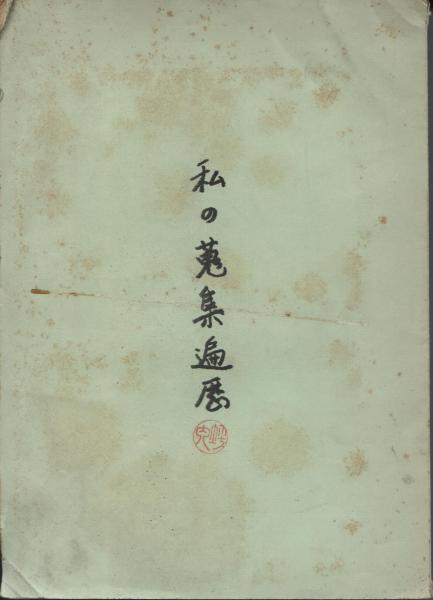 私の蒐集遍歴